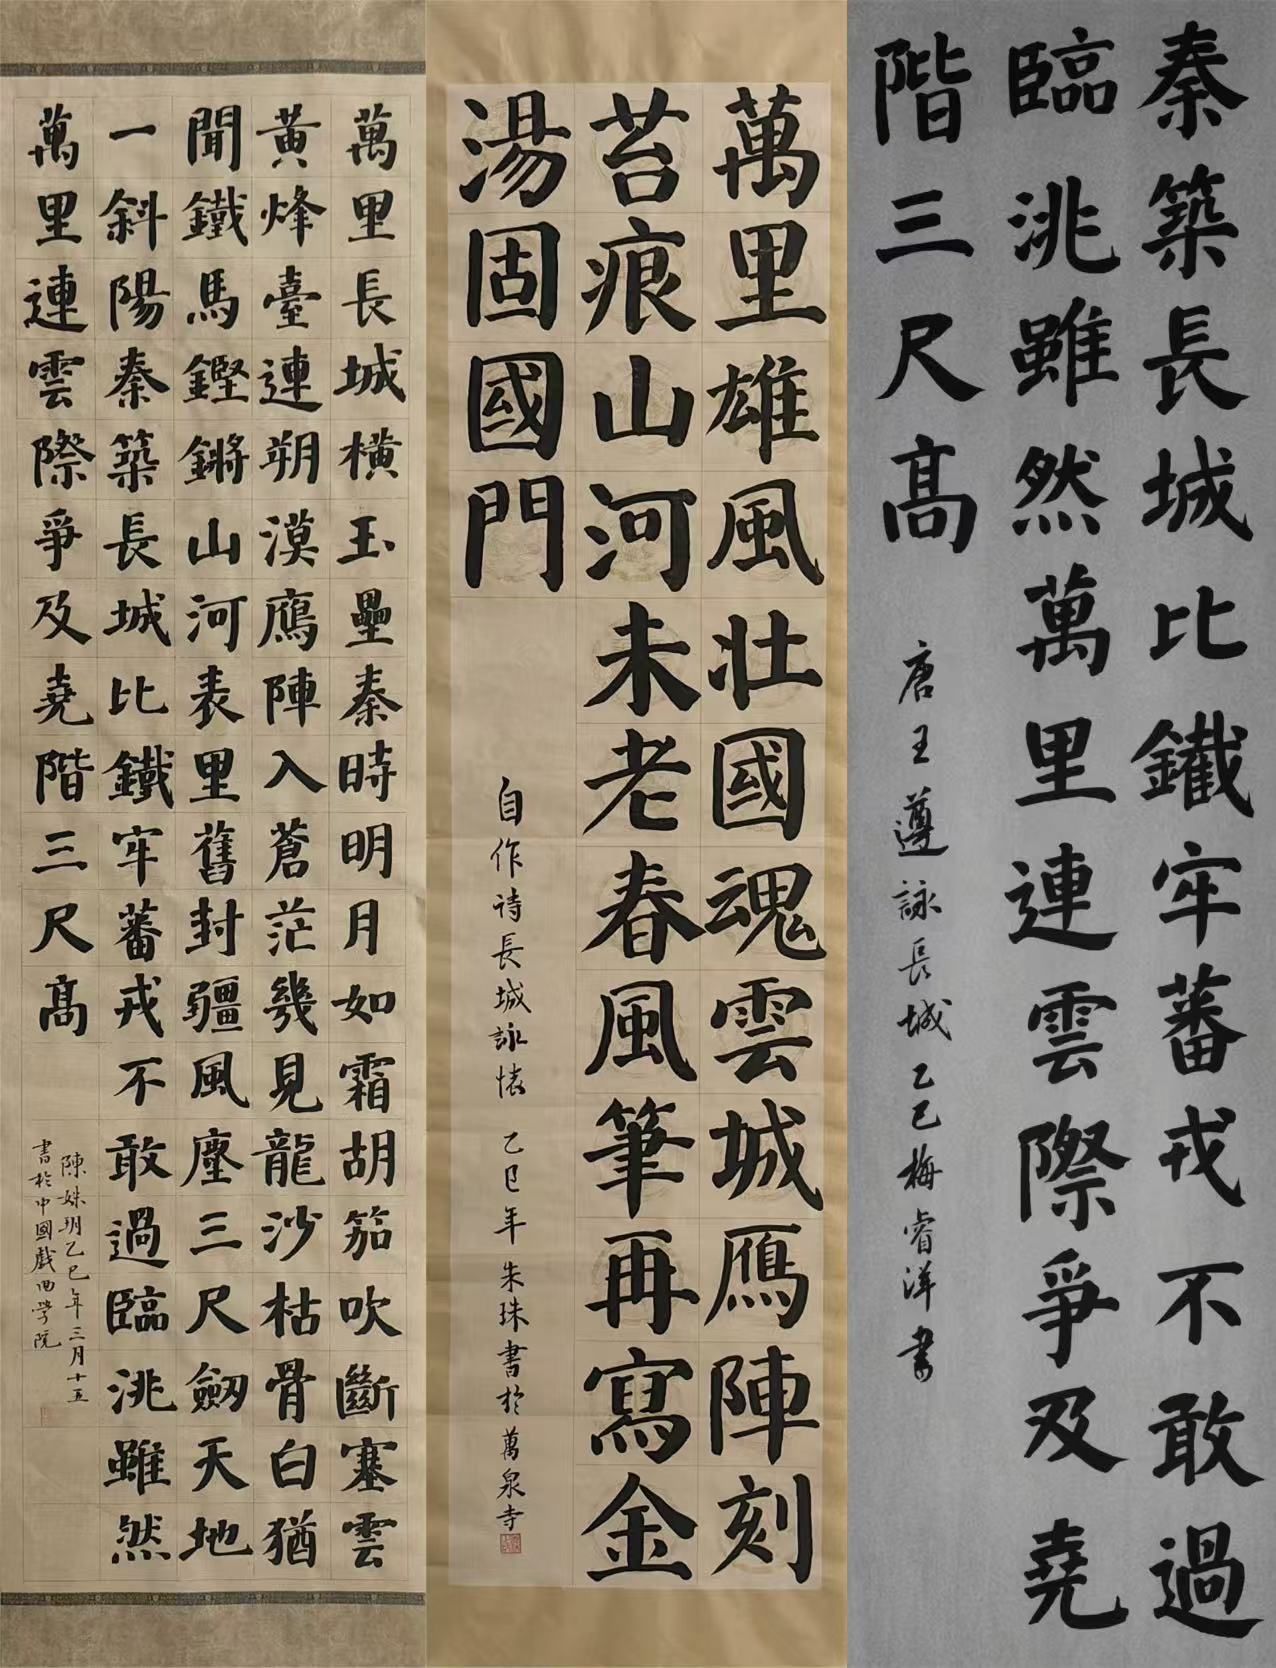 萬里長城橫玉壘秦時明月如霜胡笳吹斷塞雲
黃烽臺連朔漠鴈陣入蒼茫幾見龍沙枯骨白猶
聞鐵馬鏗鏘山河表里舊封疆風塵三尺劒天地
一斜陽秦築長城比鐵牢蕃戎不敢過臨洮雖然
萬里連雲際爭及堯階三尺髙
陳姝玥乙巳年三月十五
書於中國戲曲學院
萬里雄風壯國魂雲城鴈陣刻
苔痕山河未老春風筆再寫金
湯固國門
自作詩長城詠懷 乙巳年 朱珠書於萬泉寺
秦築長城比鐵牢蕃戎不敢過
臨洮雖然萬里連雲際爭及堯
階三尺髙
唐王遵詠長城乙巳梅睿洋書